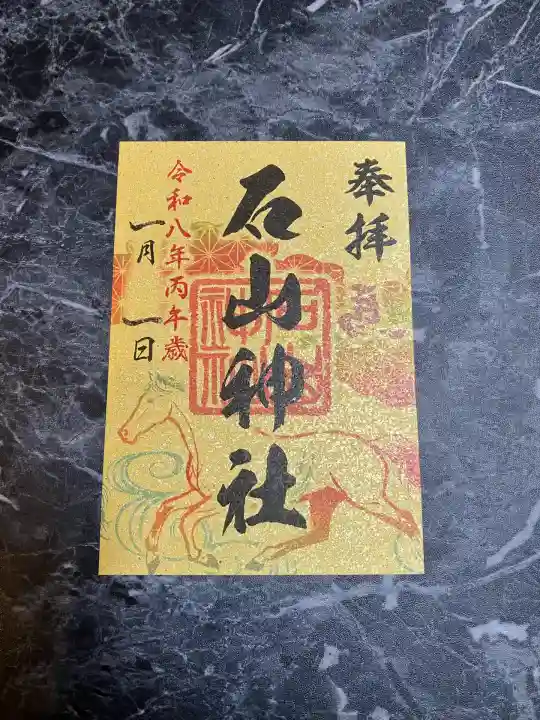 奉拝
石山神社
令和八年丙午歳
一月一日
石山神社